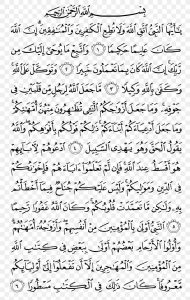 بِسْمِ ٱللَّهِ ٱلرَّحْمَٰنِ ٱلرَّحِيمِ
يَٰٓأَيُّهَا ٱلنَّبِيُّ ٱتَّقِ ٱللَّهَ وَلَا تُطِعِ ٱلْكَٰفِرِينَ وَٱلْمُنَٰفِقِينَ إِنَّ ٱللَّهَ
كَانَ عَلِيمًا حَكِيمًا ١ وَٱتَّبِعْ مَا يُوحَىٰٓ إِلَيْكَ مِن
رَّبِّكَ إِنَّ ٱللَّهَ كَانَ بِمَا تَعْمَلُونَ خَبِيرًا ٢ وَتَوَكَّلْ عَلَى ٱللَّهِ
وَكَفَىٰ بِٱللَّهِ وَكِيلًا ٣ مَّا جَعَلَ ٱللَّهُ لِرَجُلٍ مِّن قَلْبَيْنِ فِي
جَوْفِهِۦ وَمَا جَعَلَ أَزْوَٰجَكُمُ ٱلَّٰٓـِٔي تُظَٰهِرُونَ مِنْهُنَّ أُمَّهَٰتِكُمْ
وَمَا جَعَلَ أَدْعِيَآءَكُمْ أَبْنَآءَكُمْ ذَٰلِكُمْ قَوْلُكُم بِأَفْوَٰهِكُمْ وَٱللَّهُ
يَقُولُ ٱلْحَقَّ وَهُوَ يَهْدِي ٱلسَّبِيلَ ٤ ٱدْعُوهُمْ لِأٓبَآئِهِمْ
هُوَ أَقْسَطُ عِندَ ٱللَّهِ فَإِن لَّمْ تَعْلَمُوٓا۟ ءَابَآءَهُمْ فَإِخْوَٰنُكُمْ
فِي ٱلدِّينِ وَمَوَٰلِيكُمْ وَلَيْسَ عَلَيْكُمْ جُنَاحٌ فِيمَآ أَخْطَأْتُم
بِهِۦ وَلَٰكِن مَّا تَعَمَّدَتْ قُلُوبُكُمْ وَكَانَ ٱللَّهُ غَفُورًا رَّحِيمًا
٥ ٱلنَّبِيُّ أَوْلَىٰ بِٱلْمُؤْمِنِينَ مِنْ أَنفُسِهِمْ وَأَزْوَٰجُهُۥٓ أُمَّهَٰتُهُمْ
وَأُو۟لُوا۟ ٱلْأَرْحَامِ بَعْضُهُمْ أَوْلَىٰ بِبَعْضٍ فِي كِتَٰبِ ٱللَّهِ
مِنَ ٱلْمُؤْمِنِينَ وَٱلْمُهَٰجِرِينَ إِلَّآ أَن تَفْعَلُوٓا۟ إِلَىٰٓ أَوْلِيَآئِكُم
مَّعْرُوفًا كَانَ ذَٰلِكَ فِي ٱلْكِتَٰبِ مَسْطُورًا ٦